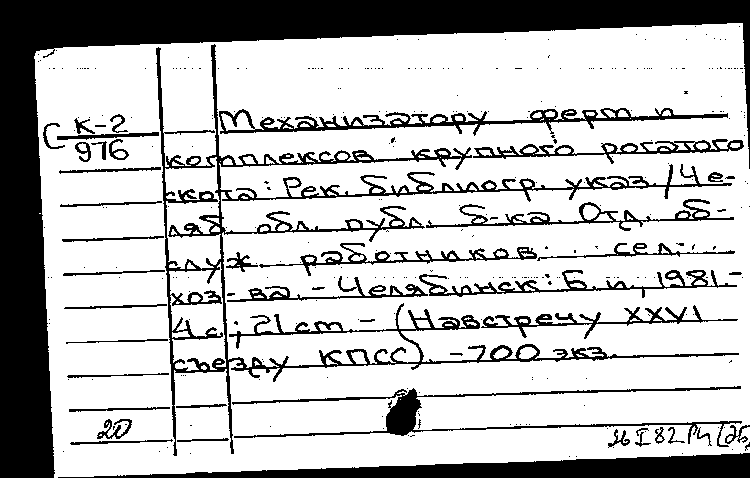 С К-2
976
Механизатору ферм и
комплексов крупного рогатого
скота: Рек. библиогр. указ. / Че-
ляб. обл. публ. б-ка. Отд. об-
служ. работников сел.
хоз-ва. - Челябинск: Б. и., 1981. -
4 с.; 21 cm. - (Навстречу XXVI
съезду КПСС). - 700 экз.
20
26 I 82